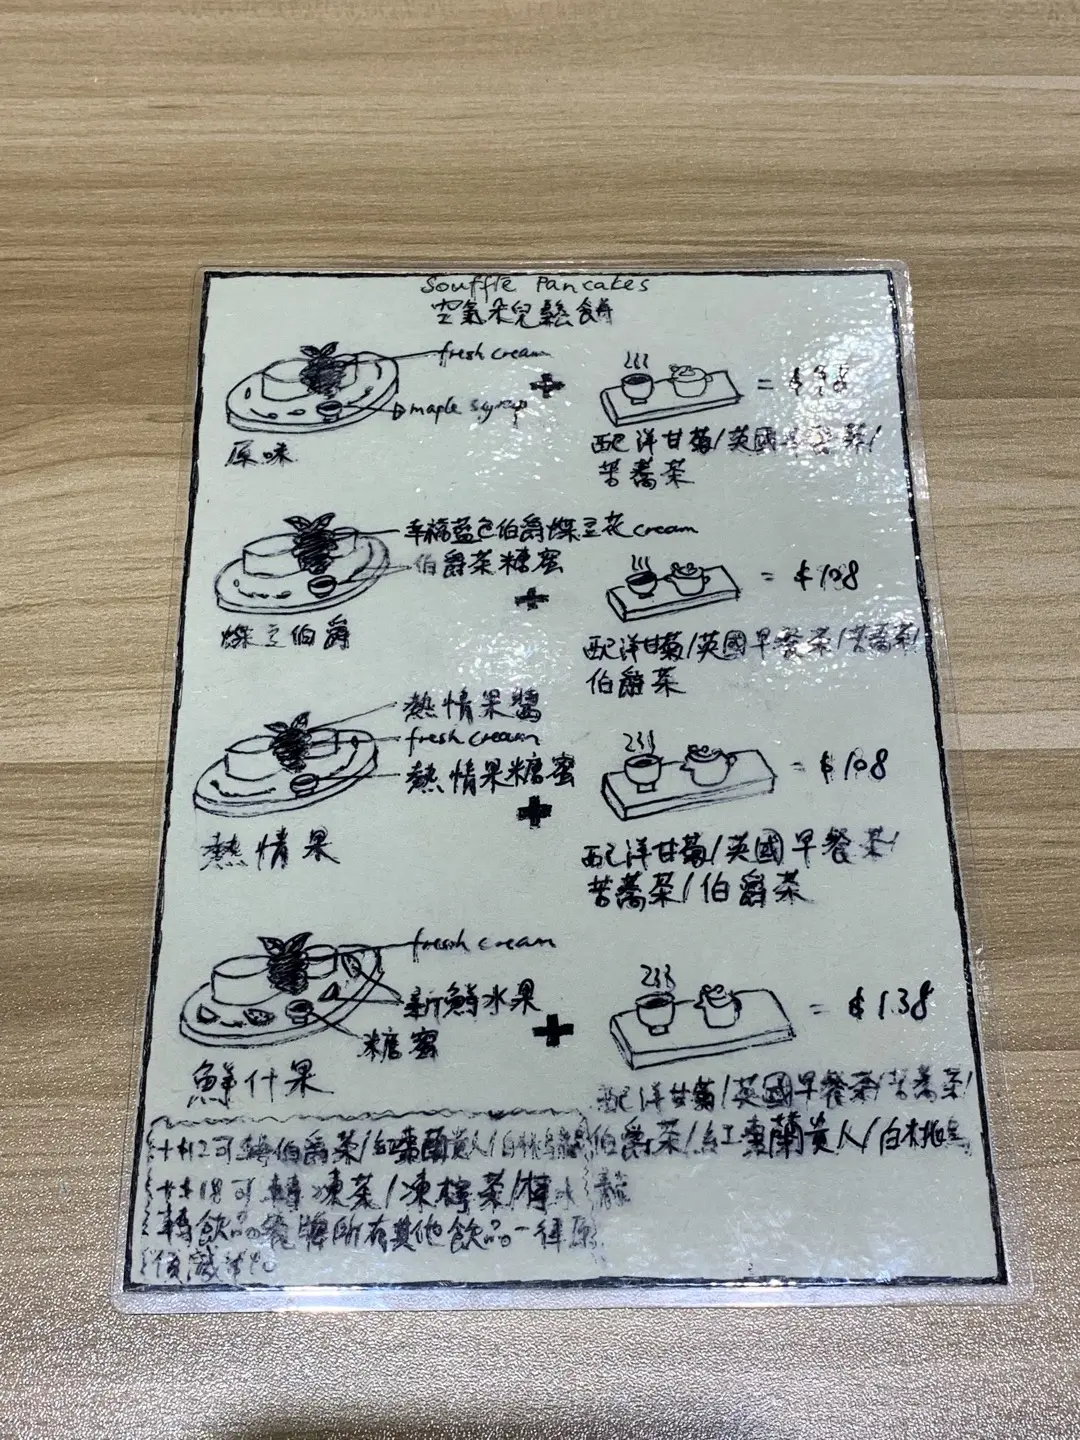 Souffle Pancakes
空氣朵兒鬆餅
fresh cream
maple syrup
原味
= $98
配洋甘菊/英國早餐茶/
苦蕎茶
幸福藍色伯爵蝶豆花cream
伯爵茶糖蜜
蝶豆伯爵
= $108
配洋甘菊/英國早餐茶/苦蕎茶/
伯爵茶
熱情果醬
fresh cream
熱情果糖蜜
熱情果
= $108
配洋甘菊/英國早餐茶/
苦蕎茶/伯爵茶
fresh cream
新鮮水果
糖蜜
鮮什果
= $138
配洋甘菊/英國早餐茶/苦蕎茶/
伯爵茶/紅東蘭貴人/白桃烏
龍
+$12可轉伯爵茶/紅東蘭貴人/白桃烏龍
+$18可轉凍茶/凍檸茶/檸水
轉飲品餐牌所有其他飲品一律原